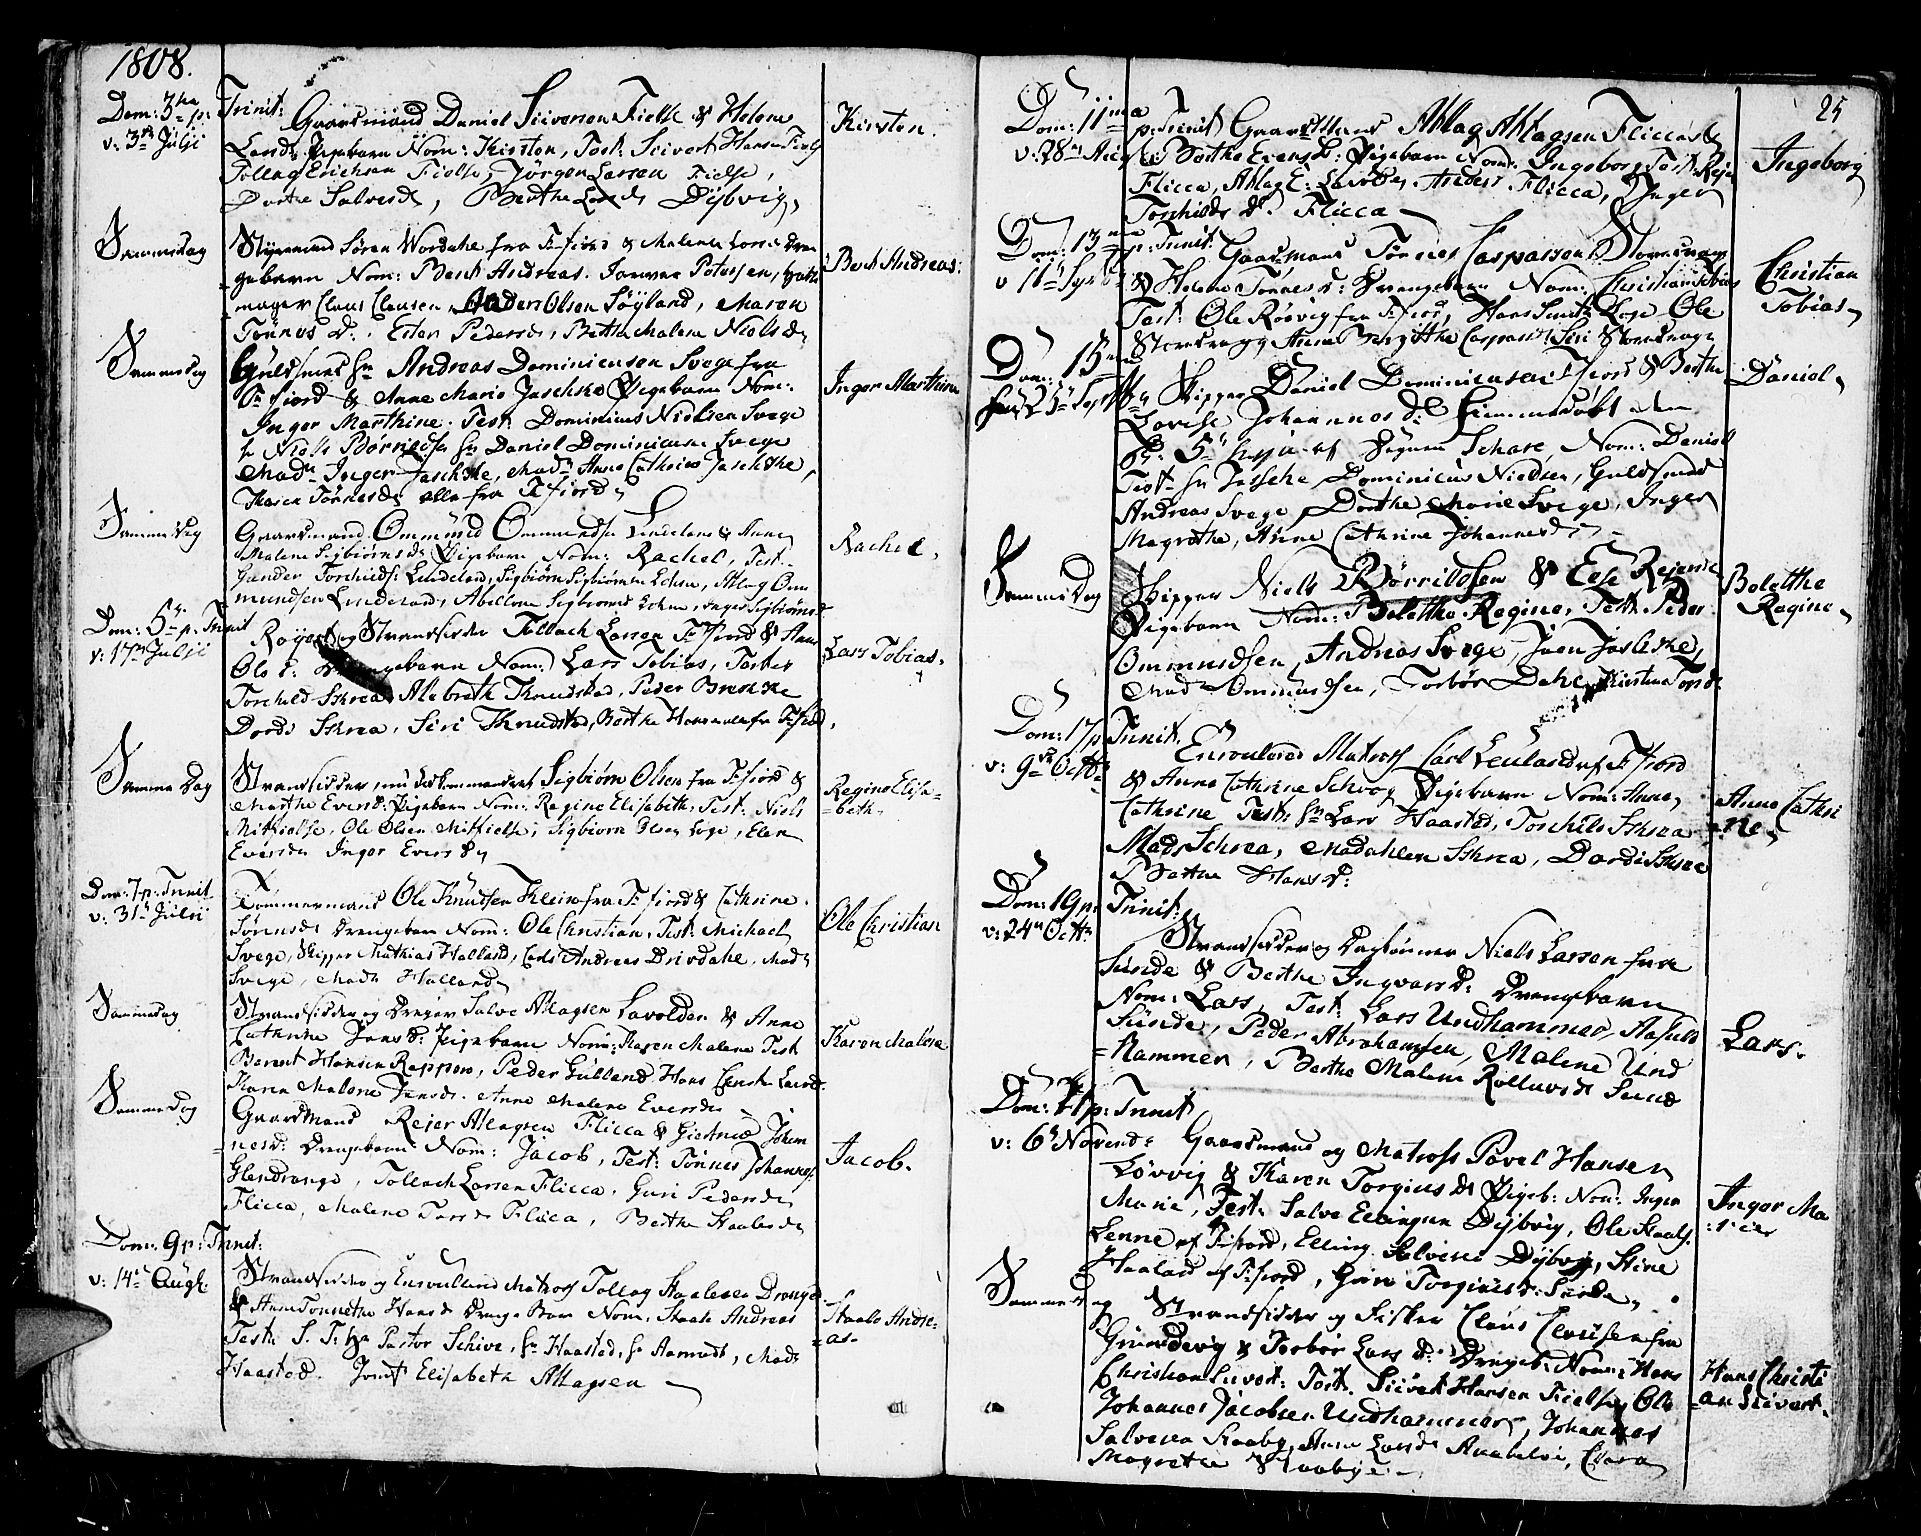 1808.
Dom: 3tia p: Trinit:
v: 3die Julii
Gaardmand Daniel Siversen Fielse & Helene
Larsd: Pigebarn Nom: Kirsten, Test: Sivert Hansen Fielse
Tollag Erichsen Fielse, Jörgen Larsen Fielse,
Dorthe Salvesd:, Berthe Larsd: Dÿbvig,
Kirsten.
Sammedag
Styrmand Sören Wordahl fra F:fiord & Malene Larsd: Dren
gebarn Nom: Bent Andreas. Petersen,
mager Claus Clausen, Anders Olsen Söyland, Maren
Tönnes D:, Ellen Peders d:, Berthe Malene Niels d:
Bent Andreas.
Sammedag
Guldsmed Hr Andreas Dominicussen Svege fra
F: fiord & Anne Marie Jaschke Pigebarn Nom:
Inger Marthine. Test: Dominicus Nielsen Svege
Hr Niels Börrildsen Hr Daniel Dominicusen Svege
Madm Inger Jaschke, Madm Anne Cathrine Jaschke,
Karen Tönnesd: alle fra F:fiord
Inger Marthine
Samme Dag
Gaardmand Ommund Ommundsen Lindeland & Anne
Malene Sigbiörnsd: Pigebarn Nom: Rachel, Test:
Gunder Torchilds: Lindeland, Sigbiörn Sigbiörnsen, Atlag Om
mundsen Lindeland, Abellone Sigbiörnsd:, Inger Sigbiörnsd:
Rachel,
Dom: 5te p: Trinit
v: 17de Julii
og Strandsidder Tollach Larsen F:fiord & Anne
Ols d: Drengebarn Nom: Lars Tobias, Testes
Torchild Skrea, Knudstad, Peder
Dordi Skrea, Siri Knudstad, Berthe Hansd: alle fra F:fiord,
Lars Tobias,
Samme Dag
Strandsidder, nu Sigbiörn Olsen fra F:fiord &
Marthe Eversd: Pigebarn Nom: Regine Elisabeth, Test: Niels
Mithielse, Ole Olsen Mithielse, Sigbiörn Olsen Svege, Elen
Eversd: Inger Evers d:
Regine Elisa=
=beth.
Dom: 7 p: Trinit
v: 31te Julii
Tömmermand Ole Knudsen Klein fra F:fiord & Cathrine
Sörensd: Drengebarn Nom: Ole Christian, Test: Michael
Svege, Skipper Mathias Holland, Carl Andreas Drivdahl, Mad:
Svege, Madm Holland,
Ole Christian
Sammedag
Strandsidder og Dreyer Salve Atlagsen Lavolden & Anne
Cathrine Jensd: Pigebarn Nom: Karen Malene Test
Berent Hansen, Peder Gulland Hans
Karen Malene Jensd:. Anne Malene Eversd:
Karen Malene
Samme Dag
Gaardmand Reier Atlagsen Flicca & Giertrud Johan
=nesd: Drengebarn Nom: Jacob, Test: Tönnes Johannes:
Glendrange, Tollach Larsen Flicca, Guri Pedersd:
Flicca, Malene Larsd: Flicca, Berthe Staalesd:
Jacob.
Dom: 9 p: Trinit:
v: 14de Augt.
Strandsidder og Enroullerd Matros Tollag Staalesen Drange
& Anne Tonnethe Hansd: Drenge Barn Nom: Staale Andreas
Test: S. T: Hr Pastor Schive, Hr Haasted, Hr Aamodt, Madm
Haasted. Elisabeth Atlagsen
Staale Andre=
=as.
25
Dom: 11ma p: Trinit
v: 28de Aug:
Gaardmand Atlag Atlagsen Flicca &
Berthe Evens D: Pigebarn Nom: Ingeborg Test: Reier
Flicca, Atlag E: Lavold, Anders Flicca, Inger
Torchilds d: Flicca
Ingeborg
Dom: 13 p: Trinit
v 11te Septb
Gaardmand Tönnes Caspersen Storekrag
& Helene Tönnesd: Drengebarn Nom: Christian Tobias
Test: Ole Rövig fra F:fiord, Hans Ole
Storekrag, Anne Bergitthe Caspersd: Siri Storekrag
Christian
Tobias,
Dom: 15
25de Septbr
Skipper Daniel Dominicusen F:fiord & Berthe
Lovise Johannes d: hiemmedöbt den
5te af Degnen Schare, Nom: Daniel
Test: Hr Jaschke, Dominicus Nielsen, Guldsmed
Andreas Svege, Dorthe Marie Svege, Inger
Magrethe, Anne Cathrine Johannesd:
Daniel,
Samme Dag
Skipper Niels Börrildsen & Else Reiersd:
Pigebarn Nom: Bolethe Regine, Test: Peder
Ommundsen, Andreas Svege, Juen Jaschke,
Mad: Ommundsen, Torbör Dahl, Kirstine
Bolethe
Regine,
Dom: 17 p: Trinit.
v: 9de Octbr
Enroulered Matros Carl Leuland af F:fiord
& Anne Cathrine Schrog Pigebarn Nom: Anne
Cathrine Test: Hr Lars Haasted, Torchild Skrea
Mads Schrea, Madahlen Skrea, Dordi Skrea
Berthe Hans d:
Anne Cathri
=ne,
Dom: 19 p: Trinit:
v: 24de Octbr
Strandsidder og Dagtönner Niels Larsen fra
Sunde & Berthe Ingvorsd: Drengebarn
Nom: Lars, Test: Lars Undhammer,
Sunde, Peder Abrahamsen, Malene Und
=hammer, Berthe Malene Rollevsd: Sund
Lars.
Dom: 21 p: Trinit
v: 6te Novemb:
Gaardmand og Matros Povel Hansen
Lövvig & Karen Torgius d: Pigeb: Nom: Inger
Marie, Test: Salve Ellingsen Dÿbvig, Ole
Lenne af F:fiord, Elling Salvesen Dÿbvig, Stine
Haaland af F:fiord, Guri Torgiusd: Sunde,
Inger Ma
=rie
Samme Dag
Strandsidder og Fisker Claus Clausen fra
Grundevig & Torbör Lars d: Drengeb: Nom: Hans
Christian Sivert: Test: Sivert Hansen Fielse, Ole
Johannes Jacobsen Undhammer, Johannes
Salvesen Raaby, Anne Larsd:, Clara
Magrethe
Hans Christi
=an Sivert.